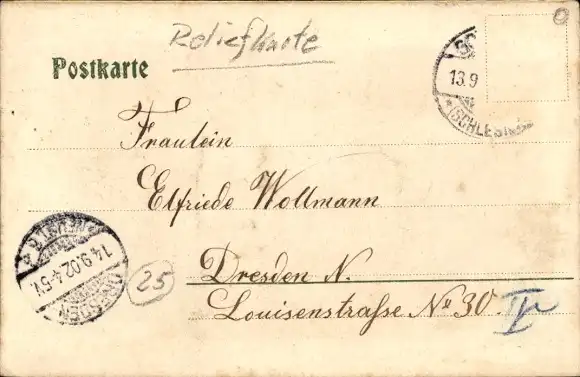 Reliefkarte
Postkarte
13.9
SCHLES
Fräulein
Elfriede Wollmann
Dresden N.
Louisenstraße No 30.
14.9.02.4-5
DRESDEN
25